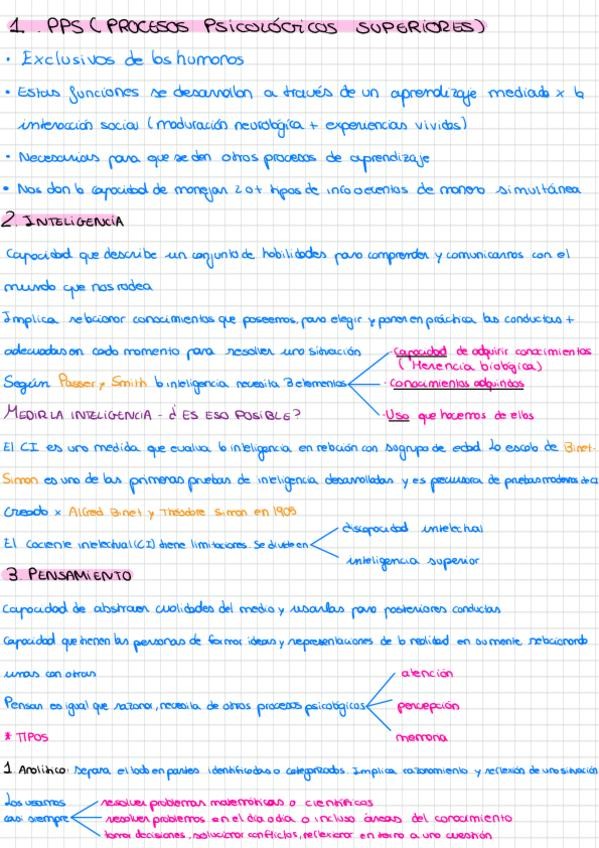 1. PPS (PROCESOS PSICOLÓGICOS SUPERIORES)
• Exclusivos de los humanos
• Estas funciones se desarrollan a través de un aprendizaje mediado x la
interacción social (maduración neurológica + experiencias vividas)
• Necesarias para que se den otros procesos de aprendizaje
• Nos dan la capacidad de manejar 2 o + tipos de incoherentes de manera simultánea
2. INTELIGENCIA
Capacidad que describe un conjunto de habilidades para comprender y comunicarnos con el
mundo que nos rodea
Implica relacionar conocimientos que poseemos, para elegir y poner en práctica las conductas +
adecuadas en cada momento para resolver una situación
Según Passer y Smith la inteligencia necesita 3 elementos
- Capacidad de adquirir conocimientos
(Herencia biológica)
- Conocimientos adquiridos
- Uso que hacemos de ellos
MEDIR LA INTELIGENCIA - ¿ES ESO POSIBLE?
El CI es una medida que evalua la inteligencia en relación con su grupo de edad. La escala de Binet-
Simon es una de las primeras pruebas de inteligencia desarrolladas y es precursora de pruebas modernas de CI
Creado x Alfred Binet y Théodore Simon en 1905
El Cociente intelectual (CI) tiene limitaciones. Se divide en
discapacidad intelectual
inteligencia superior
3. PENSAMIENTO
Capacidad de abstraer cualidades del medio y usarlas para posteriores conductas
Capacidad que tienen las personas de formar ideas y representaciones de la realidad en su mente, relacionando
unas con otras
Pensar es igual que razonar, necesita de otros procesos psicológicos
atención
percepción
memoria
* TIPOS
1. Analítico: Separa el todo en partes identificadas o categorizadas. Implica razonamiento y reflexión de una situación
Los usamos
casi siempre
resolver problemas matemáticos o científicos
resolver problemas en el día a día o incluso áreas del conocimiento
tomar decisiones, solucionar conflictos, reflexionar en torno a una cuestión